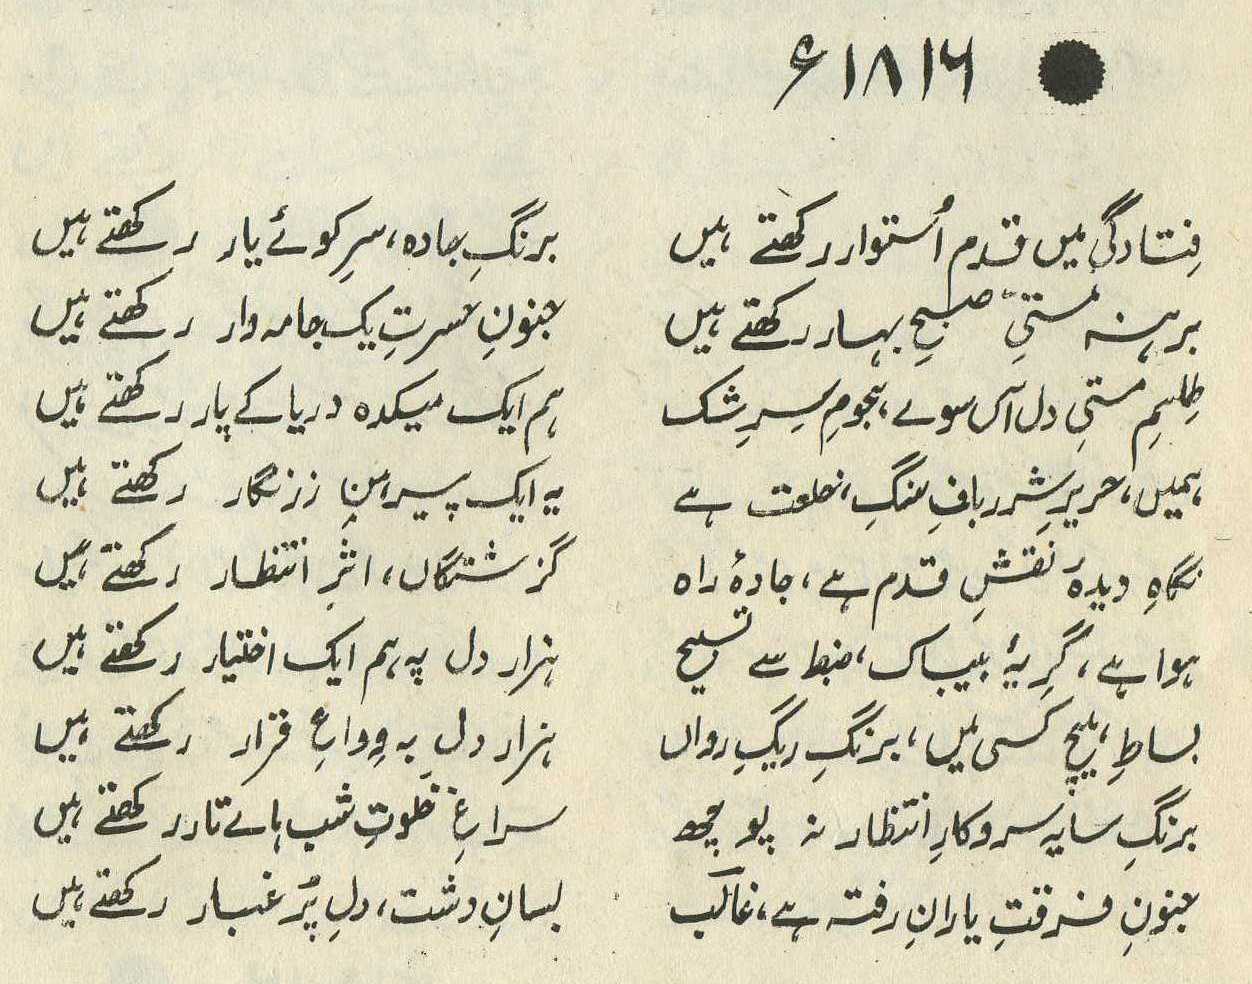 ۱۸۱۶ء
فتادگی میں قدم اُستوار رکھتے ہیں
برنگِ جادہ، سرِ کوئے یار رکھتے ہیں
برہنہ مستیِ صبحِ بہار رکھتے ہیں
جنونِ حسرتِ یک جامہ وار رکھتے ہیں
طلسمِ مستیِ دل آں سوے ہجومِ سرِشک
ہم ایک میکدہ دریا کے پار رکھتے ہیں
ہمیں، حریرِ شرر بافِ سنگ، خلعت ہے
یہ ایک پیرہنِ زرنگار رکھتے ہیں
نگاہِ دیدۂ نقشِ قدم ہے، جادۂ راہ
گزشتگاں، اثرِ انتظار رکھتے ہیں
ہوا ہے، گِریۂ بیباک، ضبط سے تسبیح
ہزار دل پہ ہم ایک اختیار رکھتے ہیں
بساطِ ہیچ کسی میں، برنگِ ریگِ رواں
ہزار دل بہ وِداعِ قرار رکھتے ہیں
برنگِ سایہ سروکارِ انتظار نہ پوچھ
سراغِ خلوتِ شب ہاے تار رکھتے ہیں
جنونِ فرقتِ یارانِ رفتہ ہے، غالبؔ
بسانِ دشت، دلِ پُر غبار رکھتے ہیں